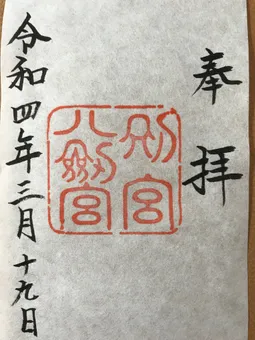 奉拝
別宮
八劔宮
令和四年三月十九日